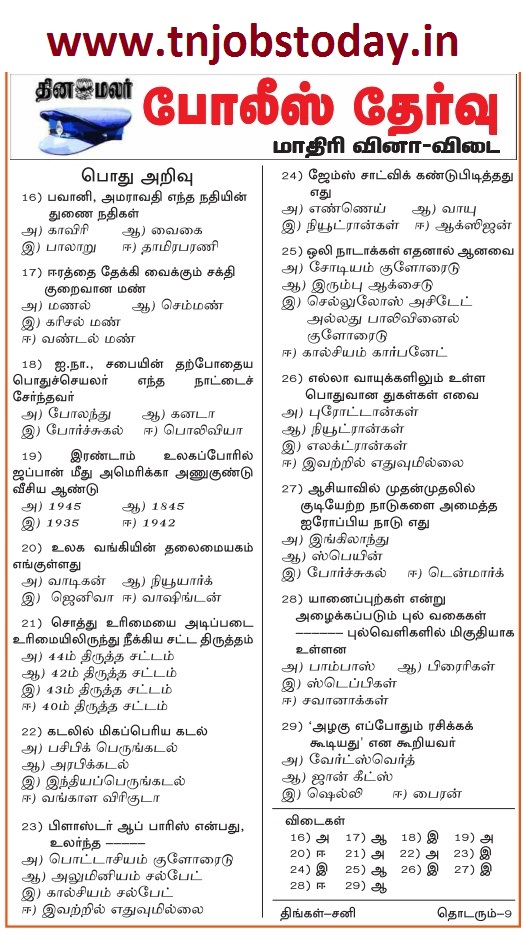 www.tnjobstoday.in
தினமலர்
போலீஸ் தேர்வு
மாதிரி வினா-விடை
பொது அறிவு
16) பவானி, அமராவதி எந்த நதியின்
துணை நதிகள்
அ) காவிரி ஆ) வைகை
இ) பாலாறு ஈ) தாமிரபரணி
17) ஈரத்தை தேக்கி வைக்கும் சக்தி
குறைவான மண்
அ) மணல் ஆ) செம்மண்
இ) கரிசல் மண்
ஈ) வண்டல் மண்
18) ஐ.நா., சபையின் தற்போதைய
பொதுச்செயலர் எந்த நாட்டைச்
சேர்ந்தவர்
அ) போலந்து ஆ) கனடா
இ) போர்ச்சுகல் ஈ) பொலிவியா
19) இரண்டாம் உலகப்போரில்
ஜப்பான் மீது அமெரிக்கா அணுகுண்டு
வீசிய ஆண்டு
அ) 1945 ஆ) 1845
இ) 1935 ஈ) 1942
20) உலக வங்கியின் தலைமையகம்
எங்குள்ளது
அ) வாடிகன் ஆ) நியூயார்க்
இ) ஜெனிவா ஈ) வாஷிங்டன்
21) சொத்து உரிமையை அடிப்படை
உரிமையிலிருந்து நீக்கிய சட்ட திருத்தம்
அ) 44ம் திருத்த சட்டம்
ஆ) 42ம் திருத்த சட்டம்
இ) 43ம் திருத்த சட்டம்
ஈ) 40ம் திருத்த சட்டம்
22) கடலில் மிகப்பெரிய கடல்
அ) பசிபிக் பெருங்கடல்
ஆ) அரபிக்கடல்
இ) இந்தியப்பெருங்கடல்
ஈ) வங்காள விரிகுடா
23) பிளாஸ்டர் ஆப் பாரிஸ் என்பது,
உலர்ந்த –––––
அ) பொட்டாசியம் குளோரைடு
ஆ) அலுமினியம் சல்பேட்
இ) கால்சியம் சல்பேட்
ஈ) இவற்றில் எதுவுமில்லை
24) ஜேம்ஸ் சாட்விக் கண்டுபிடித்தது
எது
அ) எண்ணெய் ஆ) வாயு
இ) நியூட்ரான்கள் ஈ) ஆக்ஸிஜன்
25) ஒலி நாடாக்கள் எதனால் ஆனவை
அ) சோடியம் குளோரைடு
ஆ) இரும்பு ஆக்சைடு
இ) செல்லுலோஸ் அசிடேட்
அல்லது பாலிவினைல்
குளோரைடு
ஈ) கால்சியம் கார்பனேட்
26) எல்லா வாயுக்களிலும் உள்ள
பொதுவான துகள்கள் எவை
அ) புரோட்டான்கள்
ஆ) நியூட்ரான்கள்
இ) எலக்ட்ரான்கள்
ஈ) இவற்றில் எதுவுமில்லை
27) ஆசியாவில் முதன்முதலில்
குடியேற்ற நாடுகளை அமைத்த
ஐரோப்பிய நாடு எது
அ) இங்கிலாந்து
ஆ) ஸ்பெயின்
இ) போர்ச்சுகல் ஈ) டென்மார்க்
28) யானைப்புற்கள் என்று
அழைக்கப்படும் புல் வகைகள்
–––––– புல்வெளிகளில் மிகுதியாக
உள்ளன
அ) பாம்பாஸ் ஆ) பிரைரிகள்
இ) ஸ்டெப்பிகள்
ஈ) சவானாக்கள்
29) ‘அழகு எப்போதும் ரசிக்கக்
கூடியது’ என கூறியவர்
அ) வேர்ட்ஸ்வெர்த்
ஆ) ஜான் கீட்ஸ்
இ) ஷெல்லி ஈ) பைரன்
விடைகள்
16) அ 17) ஆ 18) இ 19) அ
20) ஈ 21) அ 22) அ 23) இ
24) இ 25) ஆ 26) இ 27) இ
28) ஈ 29) ஆ
திங்கள்-சனி தொடரும்-9